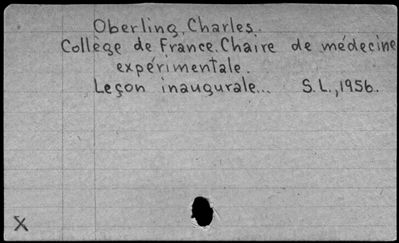 Oberling, Charles.
Collège de France. Chaire de médecine
expérimentale.
Leçon inaugurale... S.L., 1956.
X